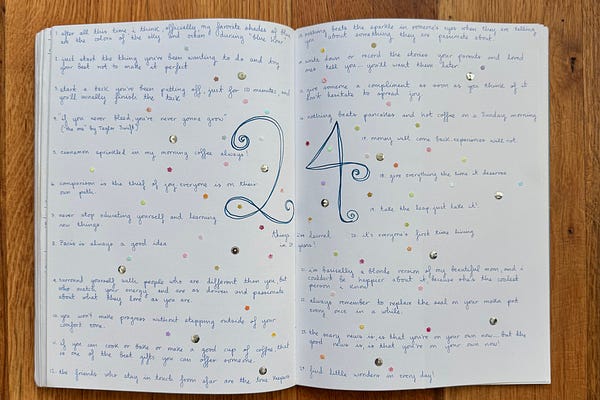 1. after all this time i think officially my favorite shades of blue
are the colors of the sky and ocean during "blue hour"
2. just start the thing you've been wanting to do and try
your best not to make it perfect
3. start a task you've been putting off just for 10 minutes and
you'll usually finish the task
4. "if you never bleed, you're never gonna grow"
("the one" by Taylor Swift)
5. cinnamon sprinkled in my morning coffee always!
6. comparison is the thief of joy. everyone is on their
own path.
7. never stop educating yourself and learning
new things.
8. Paris is always a good idea
9. surround yourself with people who are different than you, but
who match your energy and are as driven and passionate
about what they love as you are.
10. you won't make progress without stepping outside of your
comfort zone.
11. if you can cook or bake or make a good cup of coffee, that
is one of the best gifts you can offer someone.
12. the friends who stay in touch from afar are the true keepers
24
things i've learned
in years!
13. nothing beats the sparkle in someone's eyes when they are telling
you about something they are passionate about.
14. write down or record the stories your parents and loved
ones tell you... you'll want them later.
15. give someone a compliment as soon as you think of it
don't hesitate to spread joy
16. nothing beats pancakes and hot coffee on a Sunday morning
17. money will come back. experiences will not
18. give everything the time it deserves
19. take the leap. just take it!
20. it's everyone's first time living
21. i'm basically a blonde version of my beautiful mom, and i
couldn't be happier about it because she's the coolest
person i know!
22. always remember to replace the seal on your moka pot
every once in a while.
23. the scary news is is that you're on your own now... but the
good news is is that you're on your own now!
24. find little wonders in every day!